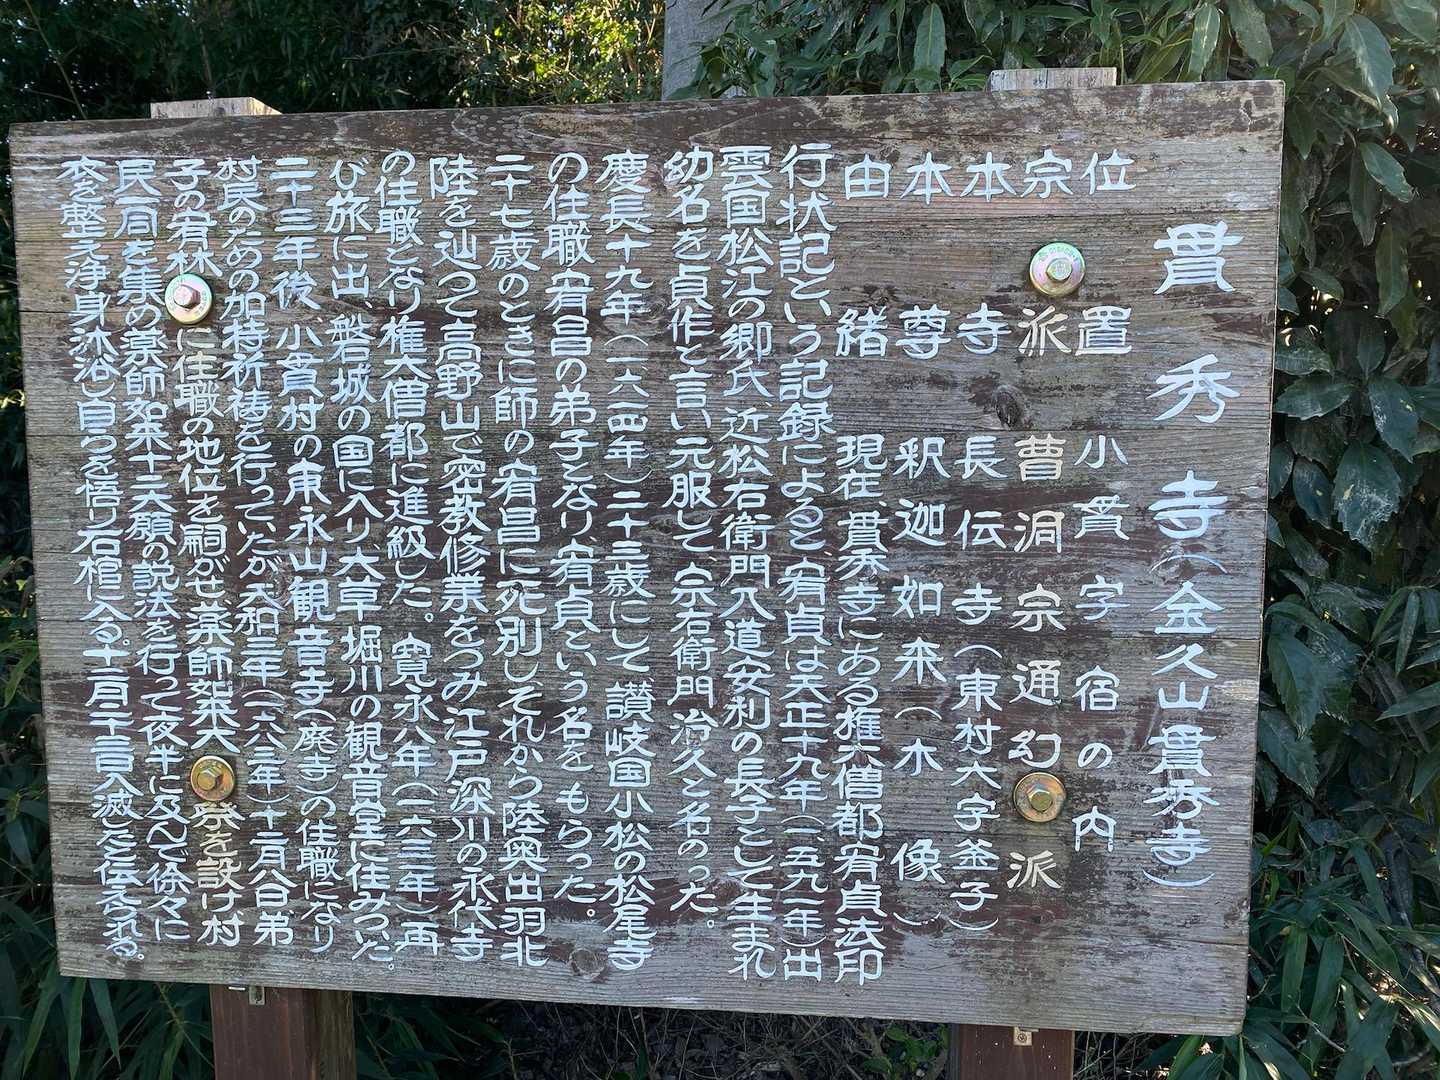 貫秀寺(金久山貫秀寺)
位置 小貫字宿の内
宗派 曹洞宗通幻派
本寺 長伝寺(東村大字釜子)
本尊 釈迦如来(木像)
由緒 現在、貫秀寺にある権大僧都宥貞法印
行状記という記録によると、宥貞は天正十九年(一五九一年)出
雲国松江の郷氏近松右衛門入道安利の長子として生まれ
幼名を貞作と言い元服して宗右衛門治久と名のった。
慶長十九年(一六一四年)二十三歳にして、讃岐国小松の松尾寺
の住職宥昌の弟子となり、宥貞という名をもらった。
二十七歳のときに師の宥昌に死別しそれから陸奥出羽北
陸を辿って高野山で密教修業をつみ江戸深川の永代寺
の住職となり権大僧都に進級した。寛永八年(一六三一年)再
び旅に出、磐城の国に入り大草堀川の観音堂に住みついた。
二十三年後小貫村の東永山観音寺(廃寺)の住職になり
村民のための加持祈祷を行っていたが天和三年(一六八三年)十二月八日弟
子の宥林に住職の地位を嗣がせ、薬師如来大祭を設け村
民一同を集め薬師如来十二大願の説法を行って夜半に及んで徐々に
衣を整え浄身沐浴し自らを悟り石棺に入る。十二月二十二日入滅と伝えられる。